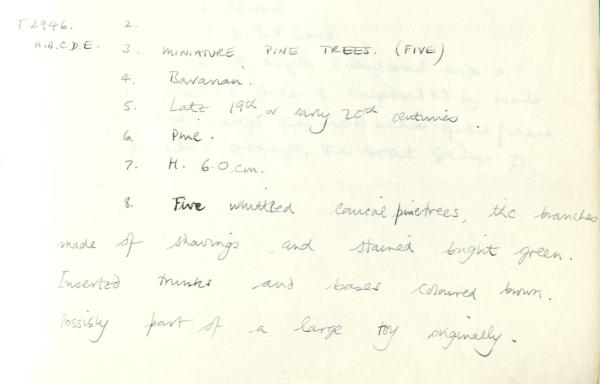 T2946. 2.
A.B.C.D.E. 3. MINIATURE PINE TREES. (FIVE)
4. Bavarian.
5. Late 19th or early 20th centuries.
6. Pine.
7. H. 6.0.cm.
8. Five whittled conical pinetrees, the branches
made of shavings and stained bright green.
Inserted trunks and bases coloured brown.
Possibly part of a large toy originally.